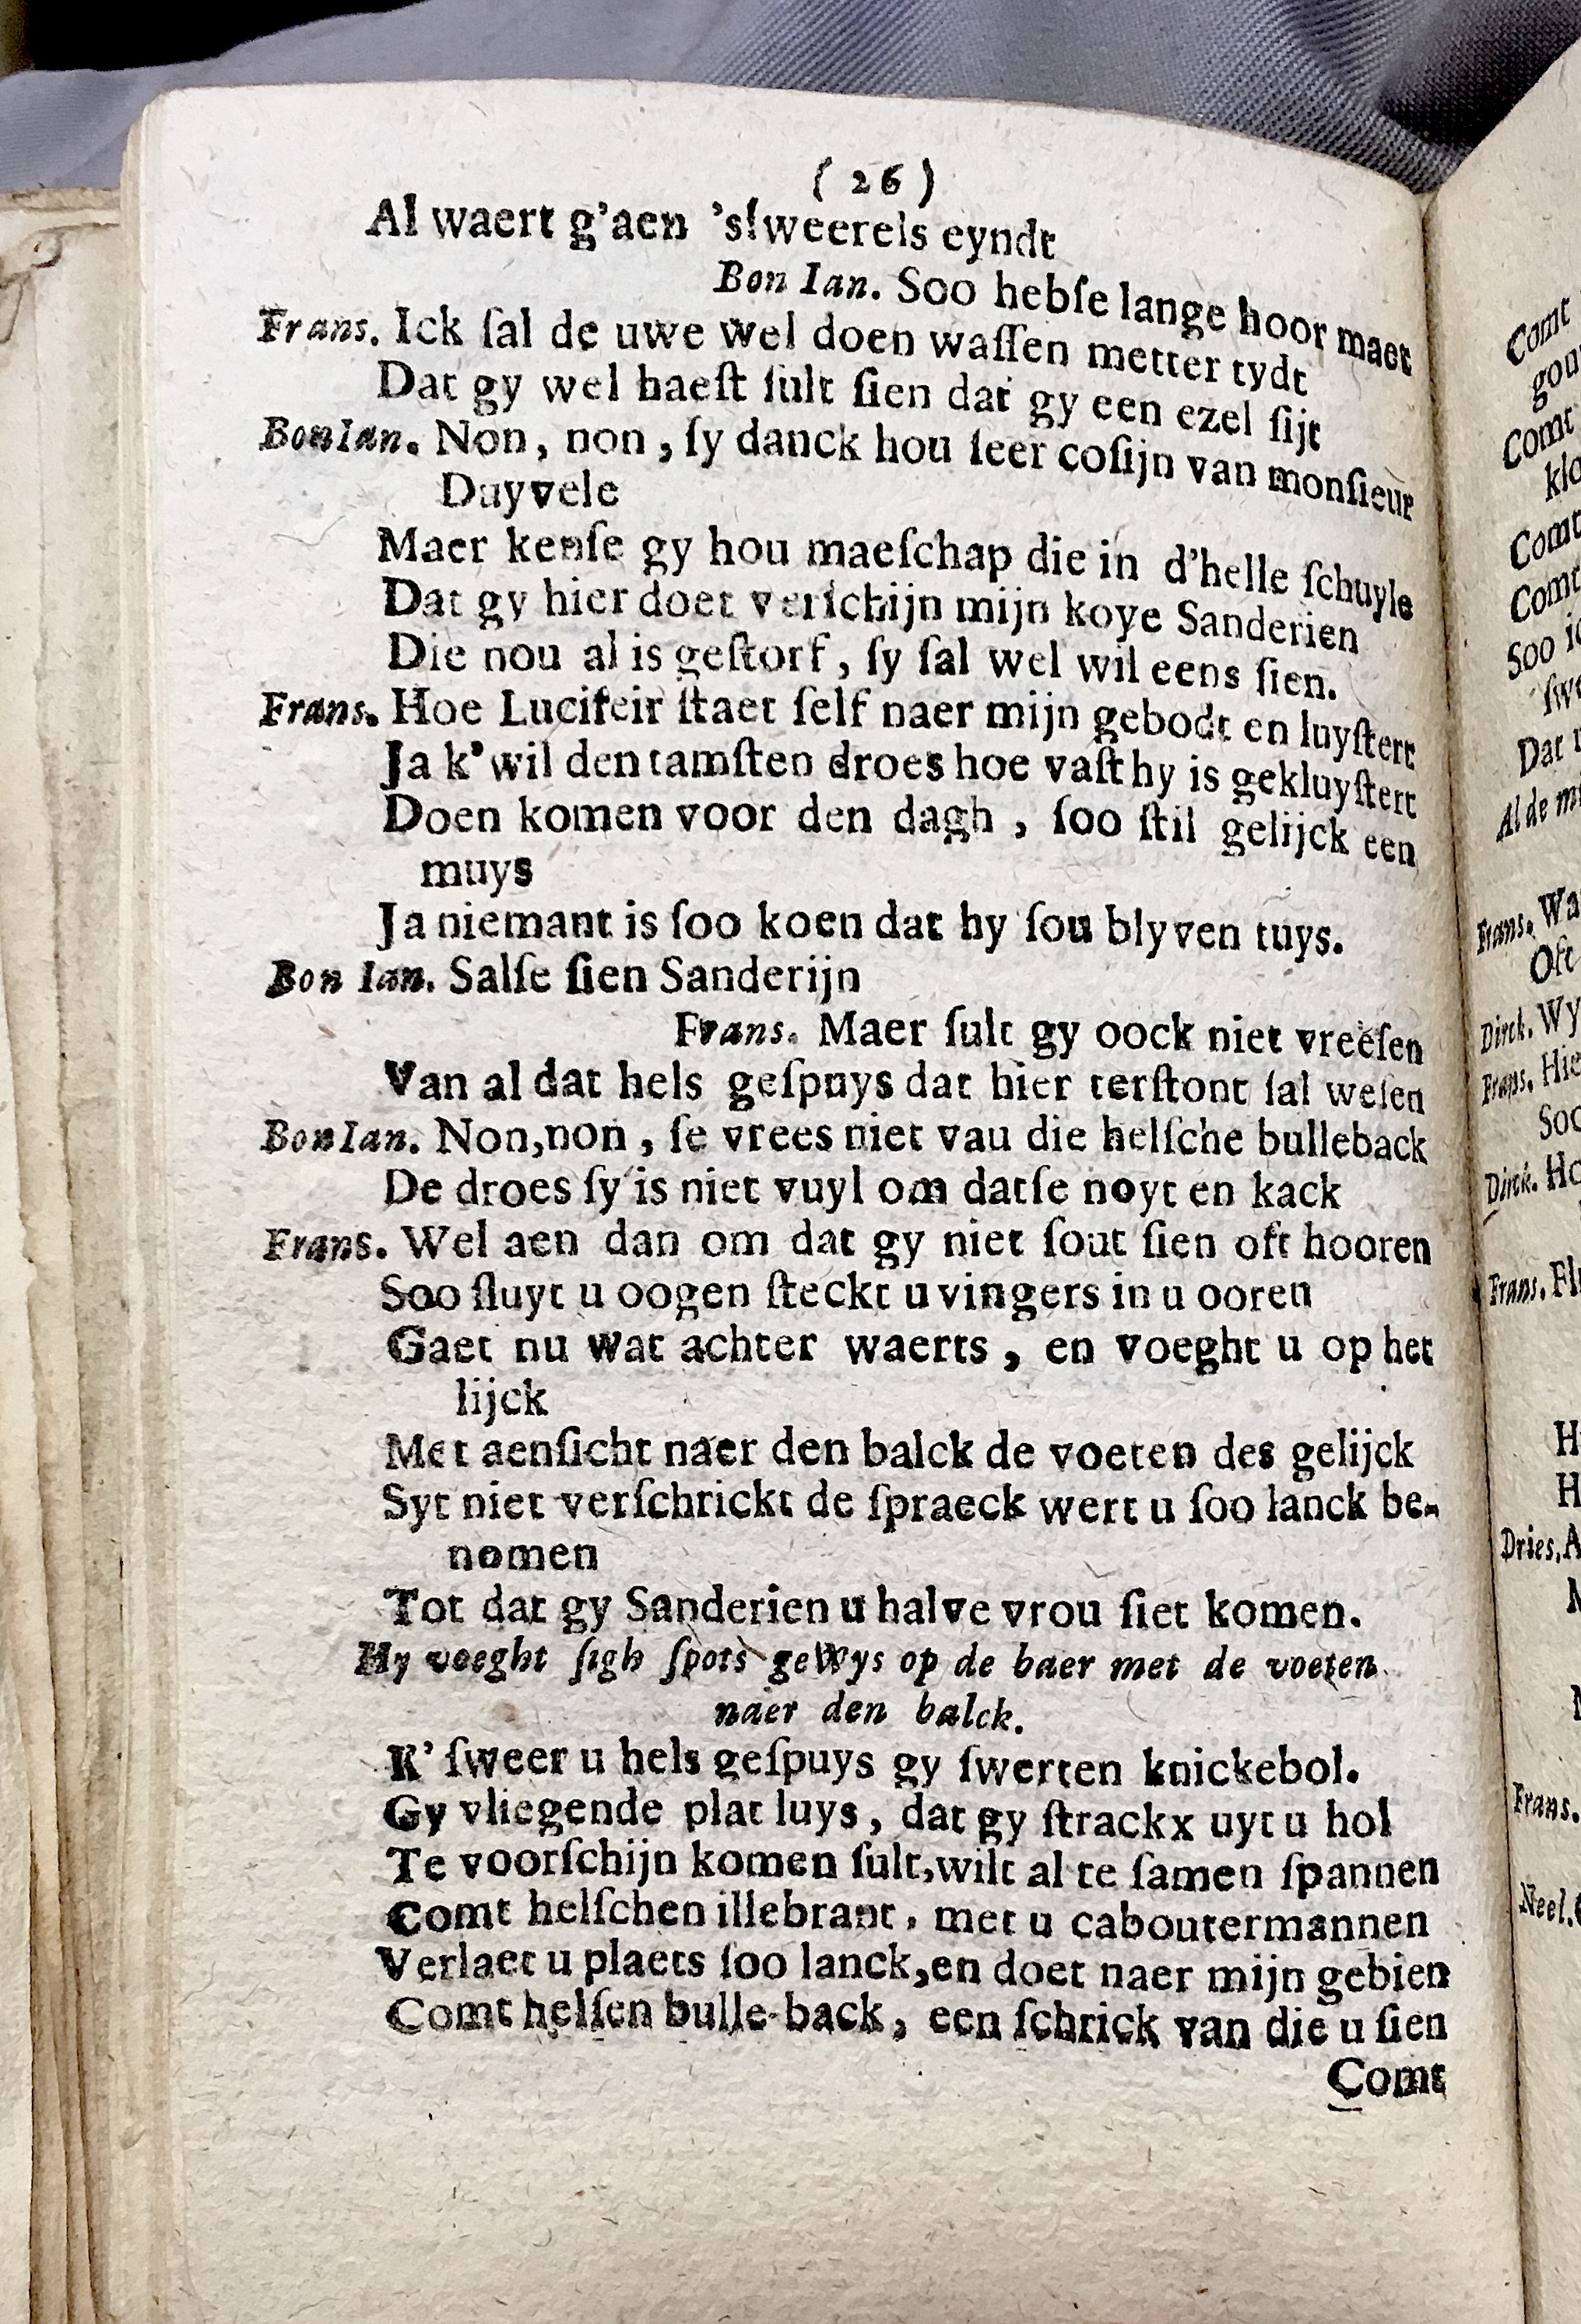 ( 26 )
Al waert g'aen 's weerels eyndt
Bon Ian. Soo hebſe lange hoor maer
Frans. Ick ſal de uwe wel doen waſſen metter tydt
Dat gy wel haeſt ſult ſien dat gy een ezel ſijt
Bon Ian. Non, non, ſy danck hou ſeer coſijn van monſieur
Duyvele
Maer kenſe gy hou maeſchap die in d'helle ſchuyle
Dat gy hier doet verſchijn mijn koye Sanderien
Die nou al is geſtorf, ſy ſal wel wil eens ſien.
Frans. Hoe Lucifeir ſtaet ſelf naer mijn gebodt en luyſtert
Ja k'wil den tamſten droes hoe vaſt hy is gekluyſtert
Doen komen voor den dagh, ſoo ſtil gelijck een
muys
Ja niemant is ſoo koen dat hy ſou blyven tuys.
Bon Ian. Salſe ſien Sanderijn
Frans. Maer ſult gy oock niet vreeſen
Van al dat hels geſpuys dat hier terſtont ſal weſen
Bon Ian. Non, non, ſe vrees niet vau die helſche bulleback
De droes ſy is niet vuyl om datſe noyt en kack
Frans. Wel aen dan om dat gy niet ſout ſien oft hooren
Soo ſluyt u oogen ſteckt u vingers in u ooren
Gaet nu wat achter waerts, en voeght u op het
lijck
Met aenſicht naer den balck de voeten des gelijck
Syt niet verſchrickt de ſpraeck wert u ſoo lanck be-
nomen
Tot dat gy Sanderien u halve vrou ſiet komen.
Hy voeght ſigh ſpots gewys op de baer met de voeten
naer den balck.
K' ſweer u hels geſpuys gy ſwerten knickebol.
Gy vliegende plat luys, dat gy ſtrackx uyt u hol
Te voorſchijn komen ſult, wilt al te ſamen ſpannen
Comt helſchen illebrant, met u caboutermannen
Verlaet u plaets ſoo lanck, en doet naer mijn gebien
Comt helſen bulle-back, een ſchrick van die u ſien
Comt